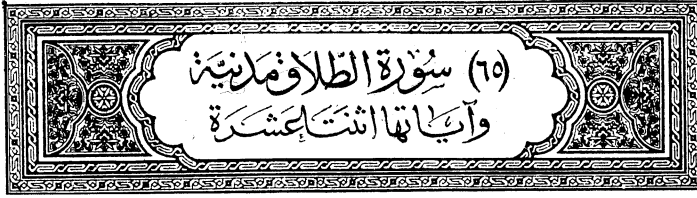 (٦٥) سُورَة الطَّلَاق مَدَنِيَّة
وَآيَاتُهَا اثْنَتَا عَشَرَة